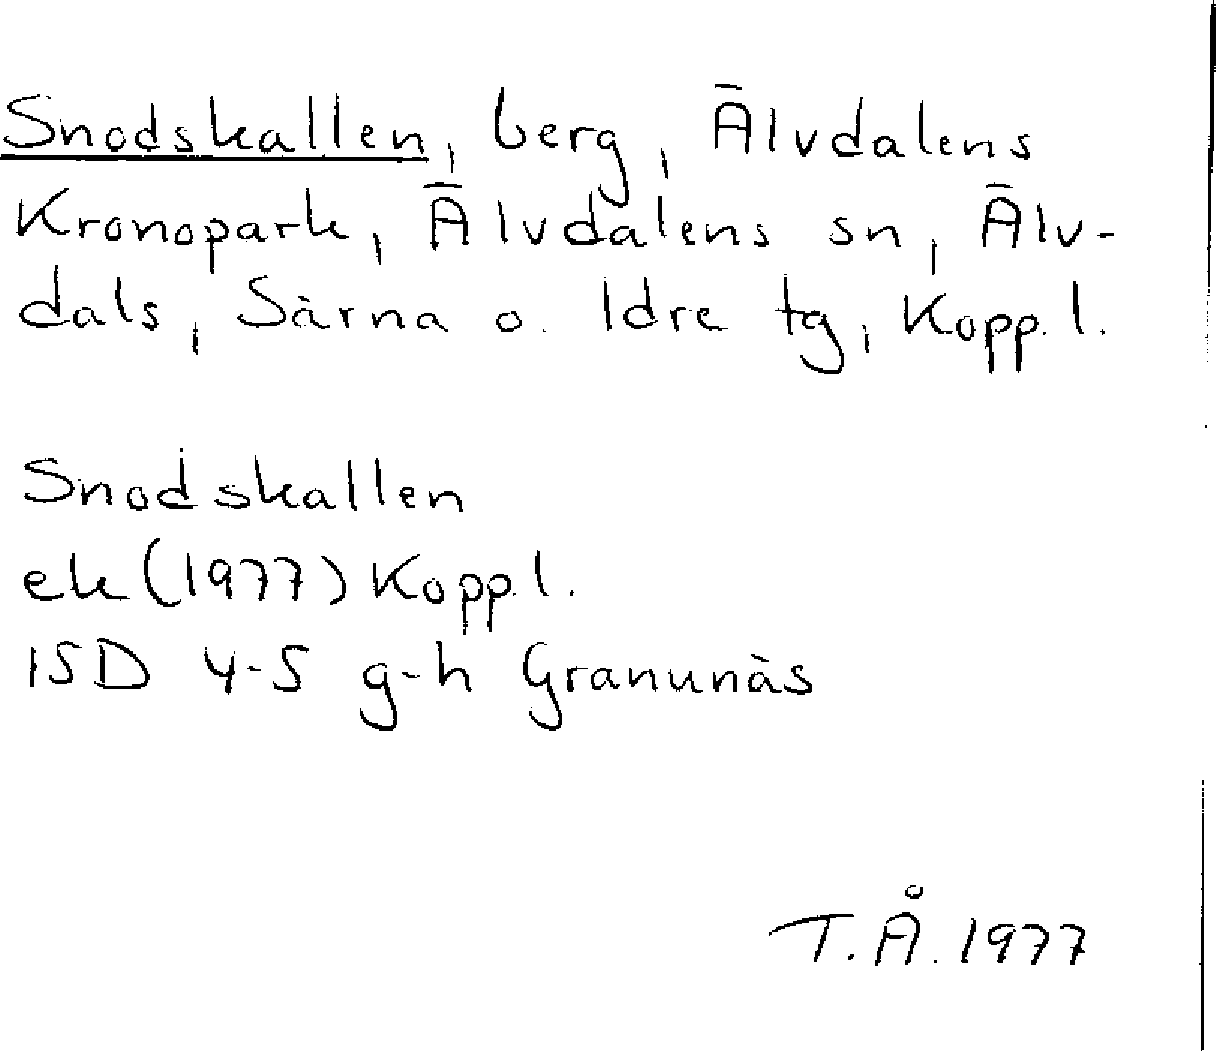 Snodskallen, berg, Älvdalens
Kronopark, Älvdalens sn, Älv-
dals, Särna o. Idre tg, Kopp. l.
Snodskallen
ek (1977) Kopp. l.
15D 4-5 g-h Granunäs
T.Å. 1977